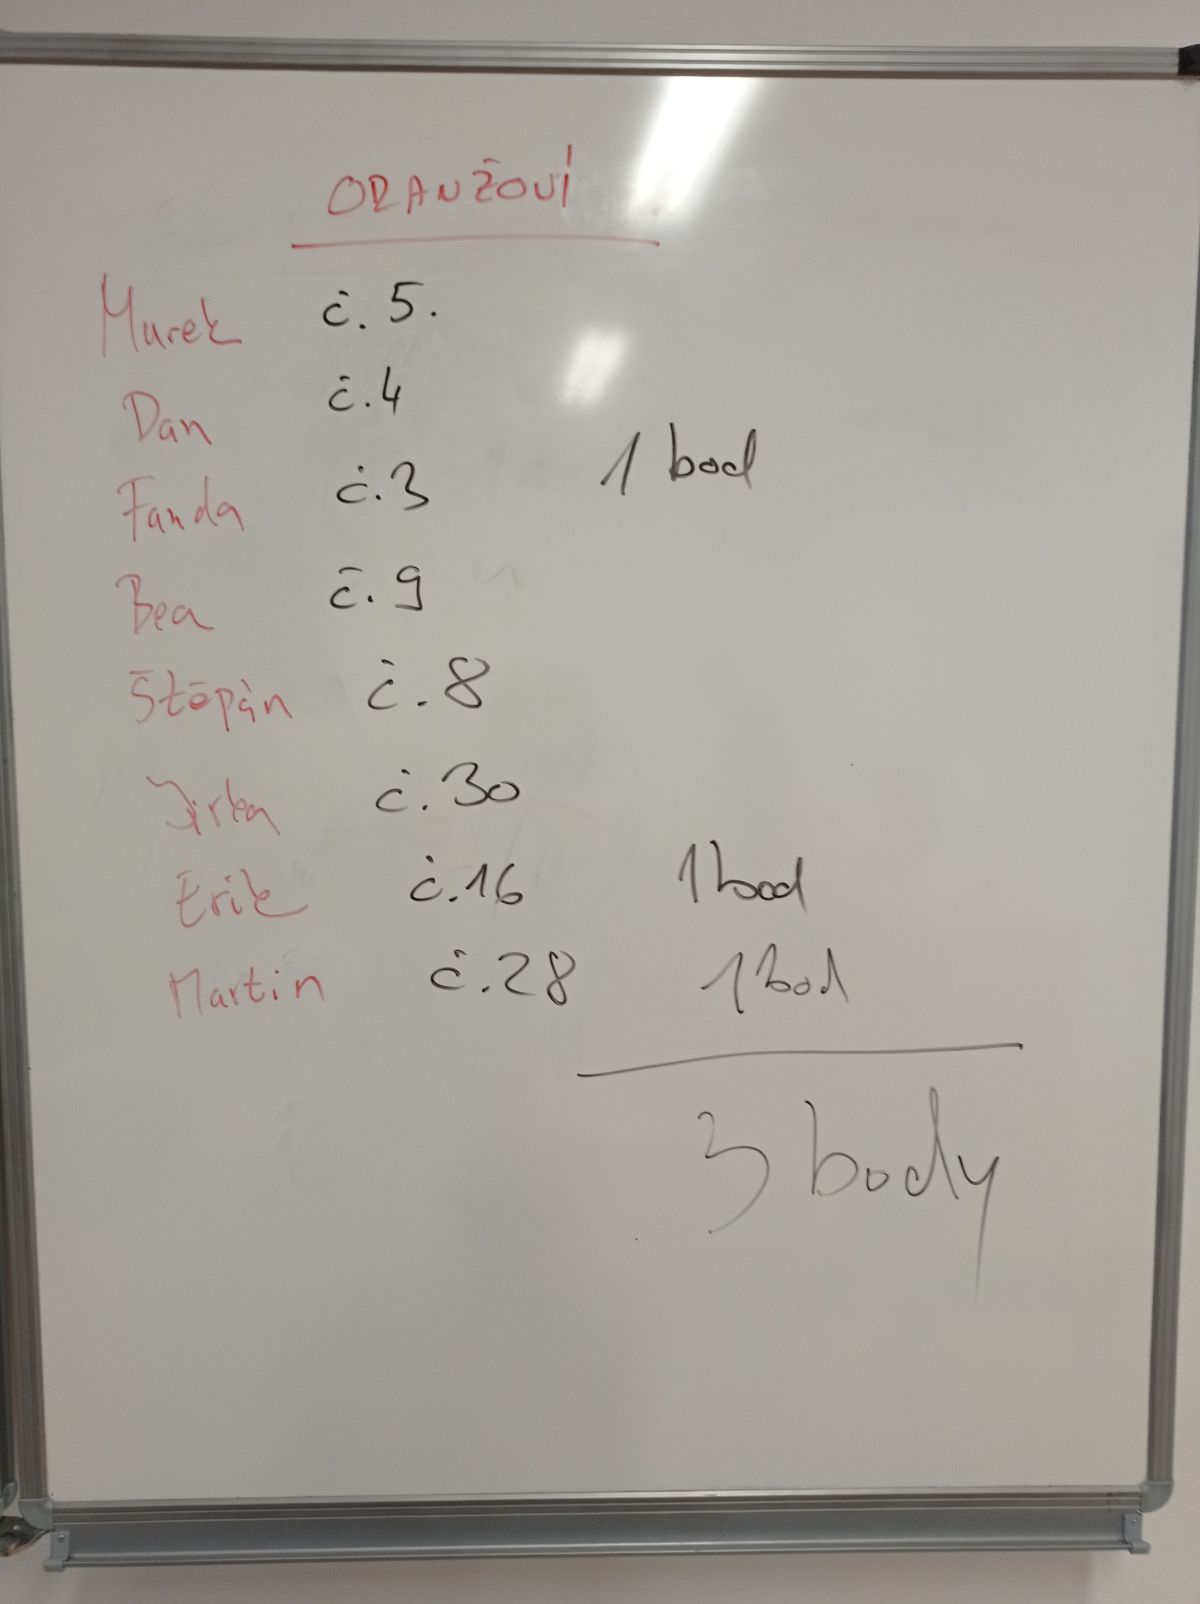 ORANŽOVÍ
Marek č. 5.
Dan č. 4
Fanda č. 3 1 bod
Bea č. 9
Štěpán č. 8
Jirka č. 30
Erik č. 16 1 bod
Martin č. 28 1 bod
3 body